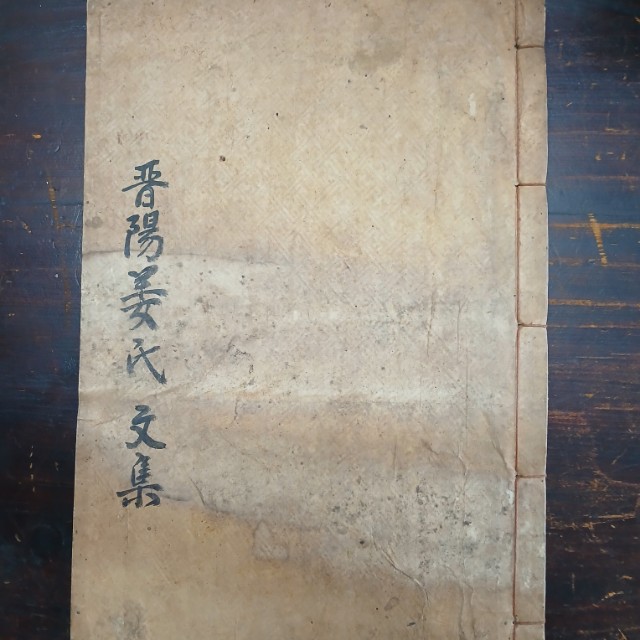 晋陽姜氏文集